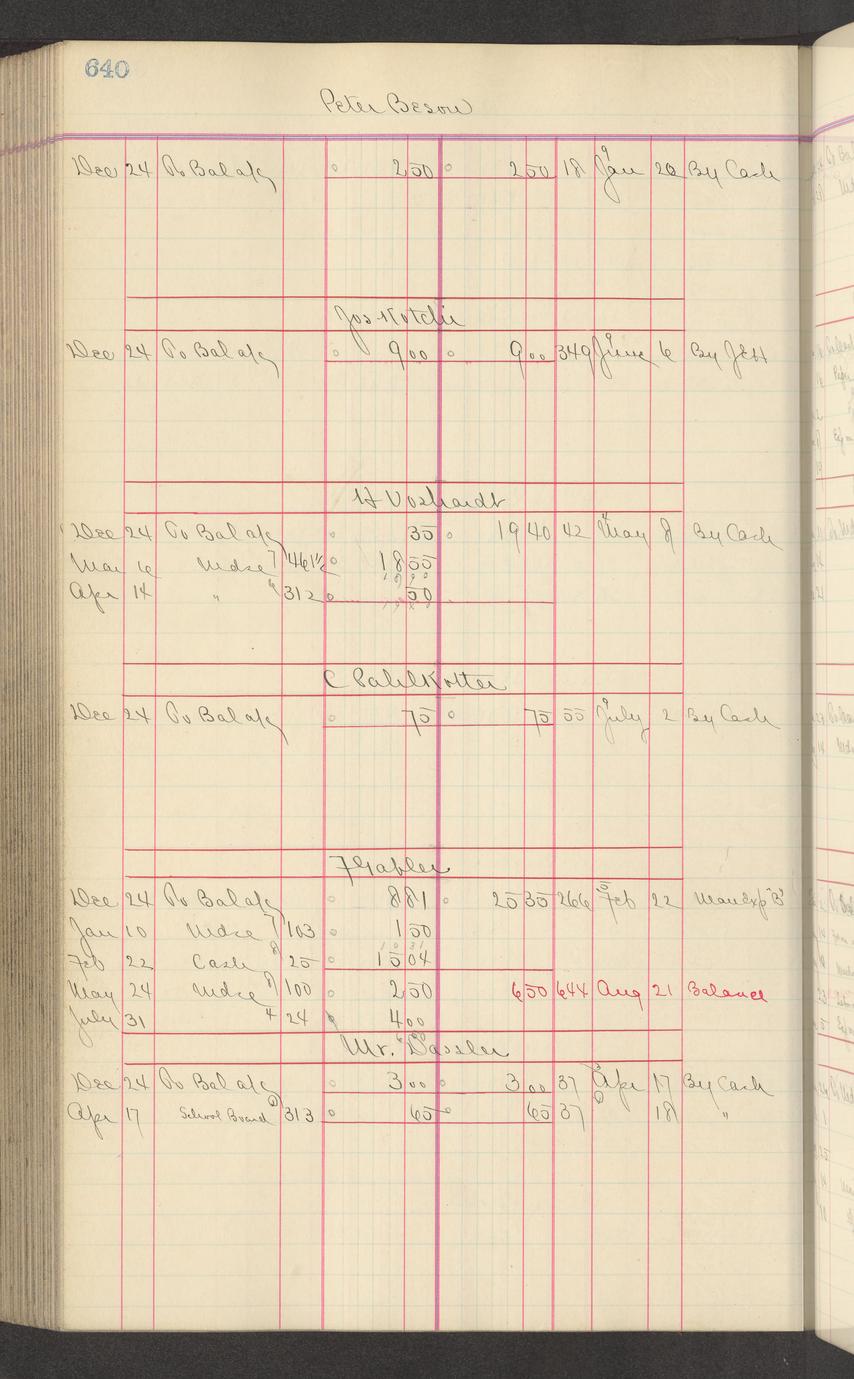 640
Peter Besow
Dec 24 To Bal a/c 2 50 2 50 18 9 Jan 20 By Cash
Jos Kotchi
Dec 24 To Bal a/c 9 00 9 00 349 9 June 6 By
H Voshardt
Dec 24 To Bal a/c 35 19 40 42 May 8 By Cash
Mar 16 Mdse 7 461½ 18 55
18 90
Apr 14 " 312 50
C Pahlkotter
Dec 24 To Bal a/c 75 75 55 9 July 2 By Cash
F Gabler
Dec 24 To Bal a/c 8 81 25 35 266 5 Feb 22 Man Exp "B"
Jan 10 Mdse 7 103 1 50
10 31
Feb 22 Cash 8 25 15 04
May 24 Mdse 8 100 2 50 6 50 644 Aug 21 Balance
July 31 4 24 4 00
Mr. Dassler
Dec 24 To Bal a/c 3 00 3 00 37 Apr 17 By Cash
Apr 17 School Board 313 65 65 37 18 "